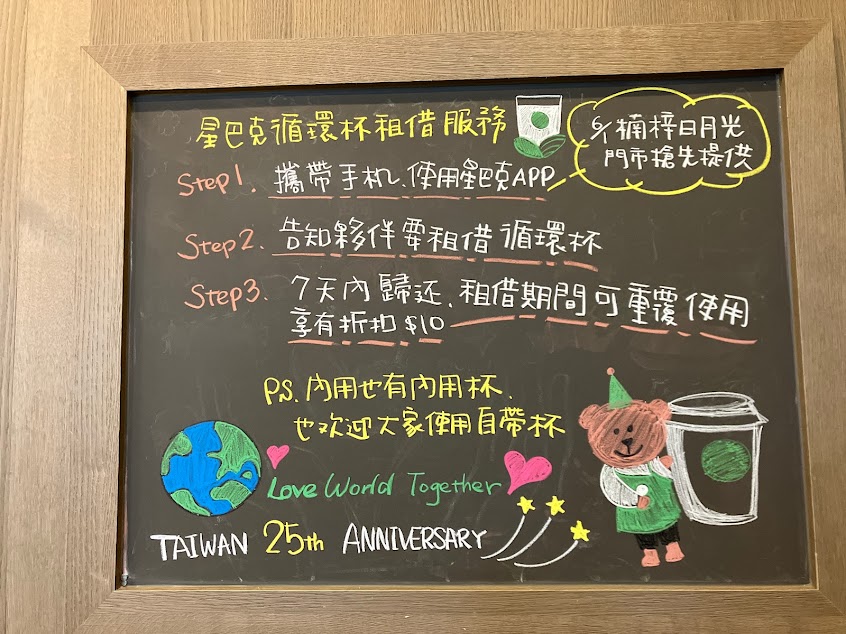 星巴克循環杯租借服務
6/1 楠梓日月光
門市搶先提供
Step1. 攜帶手机、使用星巴克APP
Step2. 告知夥伴要租借循環杯
Step3. 7天內歸还、租借期間可重覆使用
享有折扣$10
PS. 內用也有內用杯、
也欢迎大家使用自帶杯
Love World Together
TAIWAN 25th ANNIVERSARY